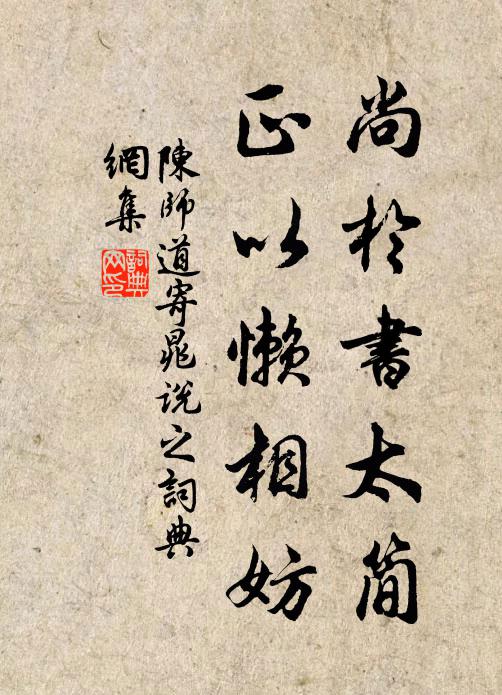 尚於書太简
正以懒相妨
陳師道寄晁说之詞典
網集
詞典
网印